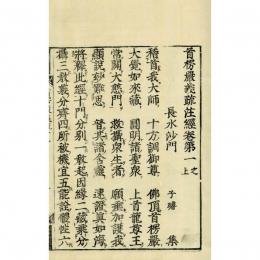 首楞嚴義疏注經卷第一之上
長水沙門 子璿 集
稽首我大師 十方調御尊 佛頂首楞嚴
大覺如來藏 圓明諸聖衆 上首龍尊王
常開大慈門 救攝衆生者 願垂加護我
願説妙難思 普共諸含識 速證真如海
將釋此經十門分別一教起因緣二藏乘分
攝三教義分齊四所被機宜五能詮體性六